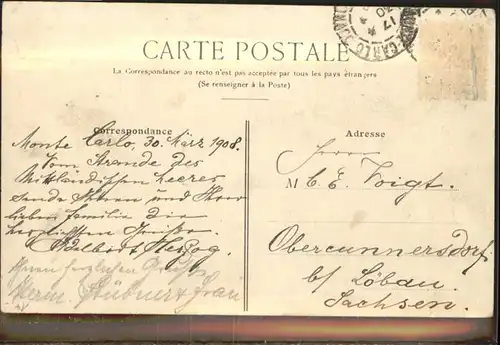 CARTE POSTALE
La Correspondance au recto n'est pas acceptée par tous les pays étrangers
(Se renseigner à la Poste)
Correspondance
Monte Carlo, 30. März 1908.
Vom Strande des
Mittländischen Meeres
sende Ihnen und Ihrer
lieben Familie die
herzlichsten Grüße.
Adalbert Herzog.
Herm. Stübner & Frau
Adresse
Herrn
M C. E. Voigt.
Obercunnersdorf
b/ Löbau.
Sachsen.
17
CARLO